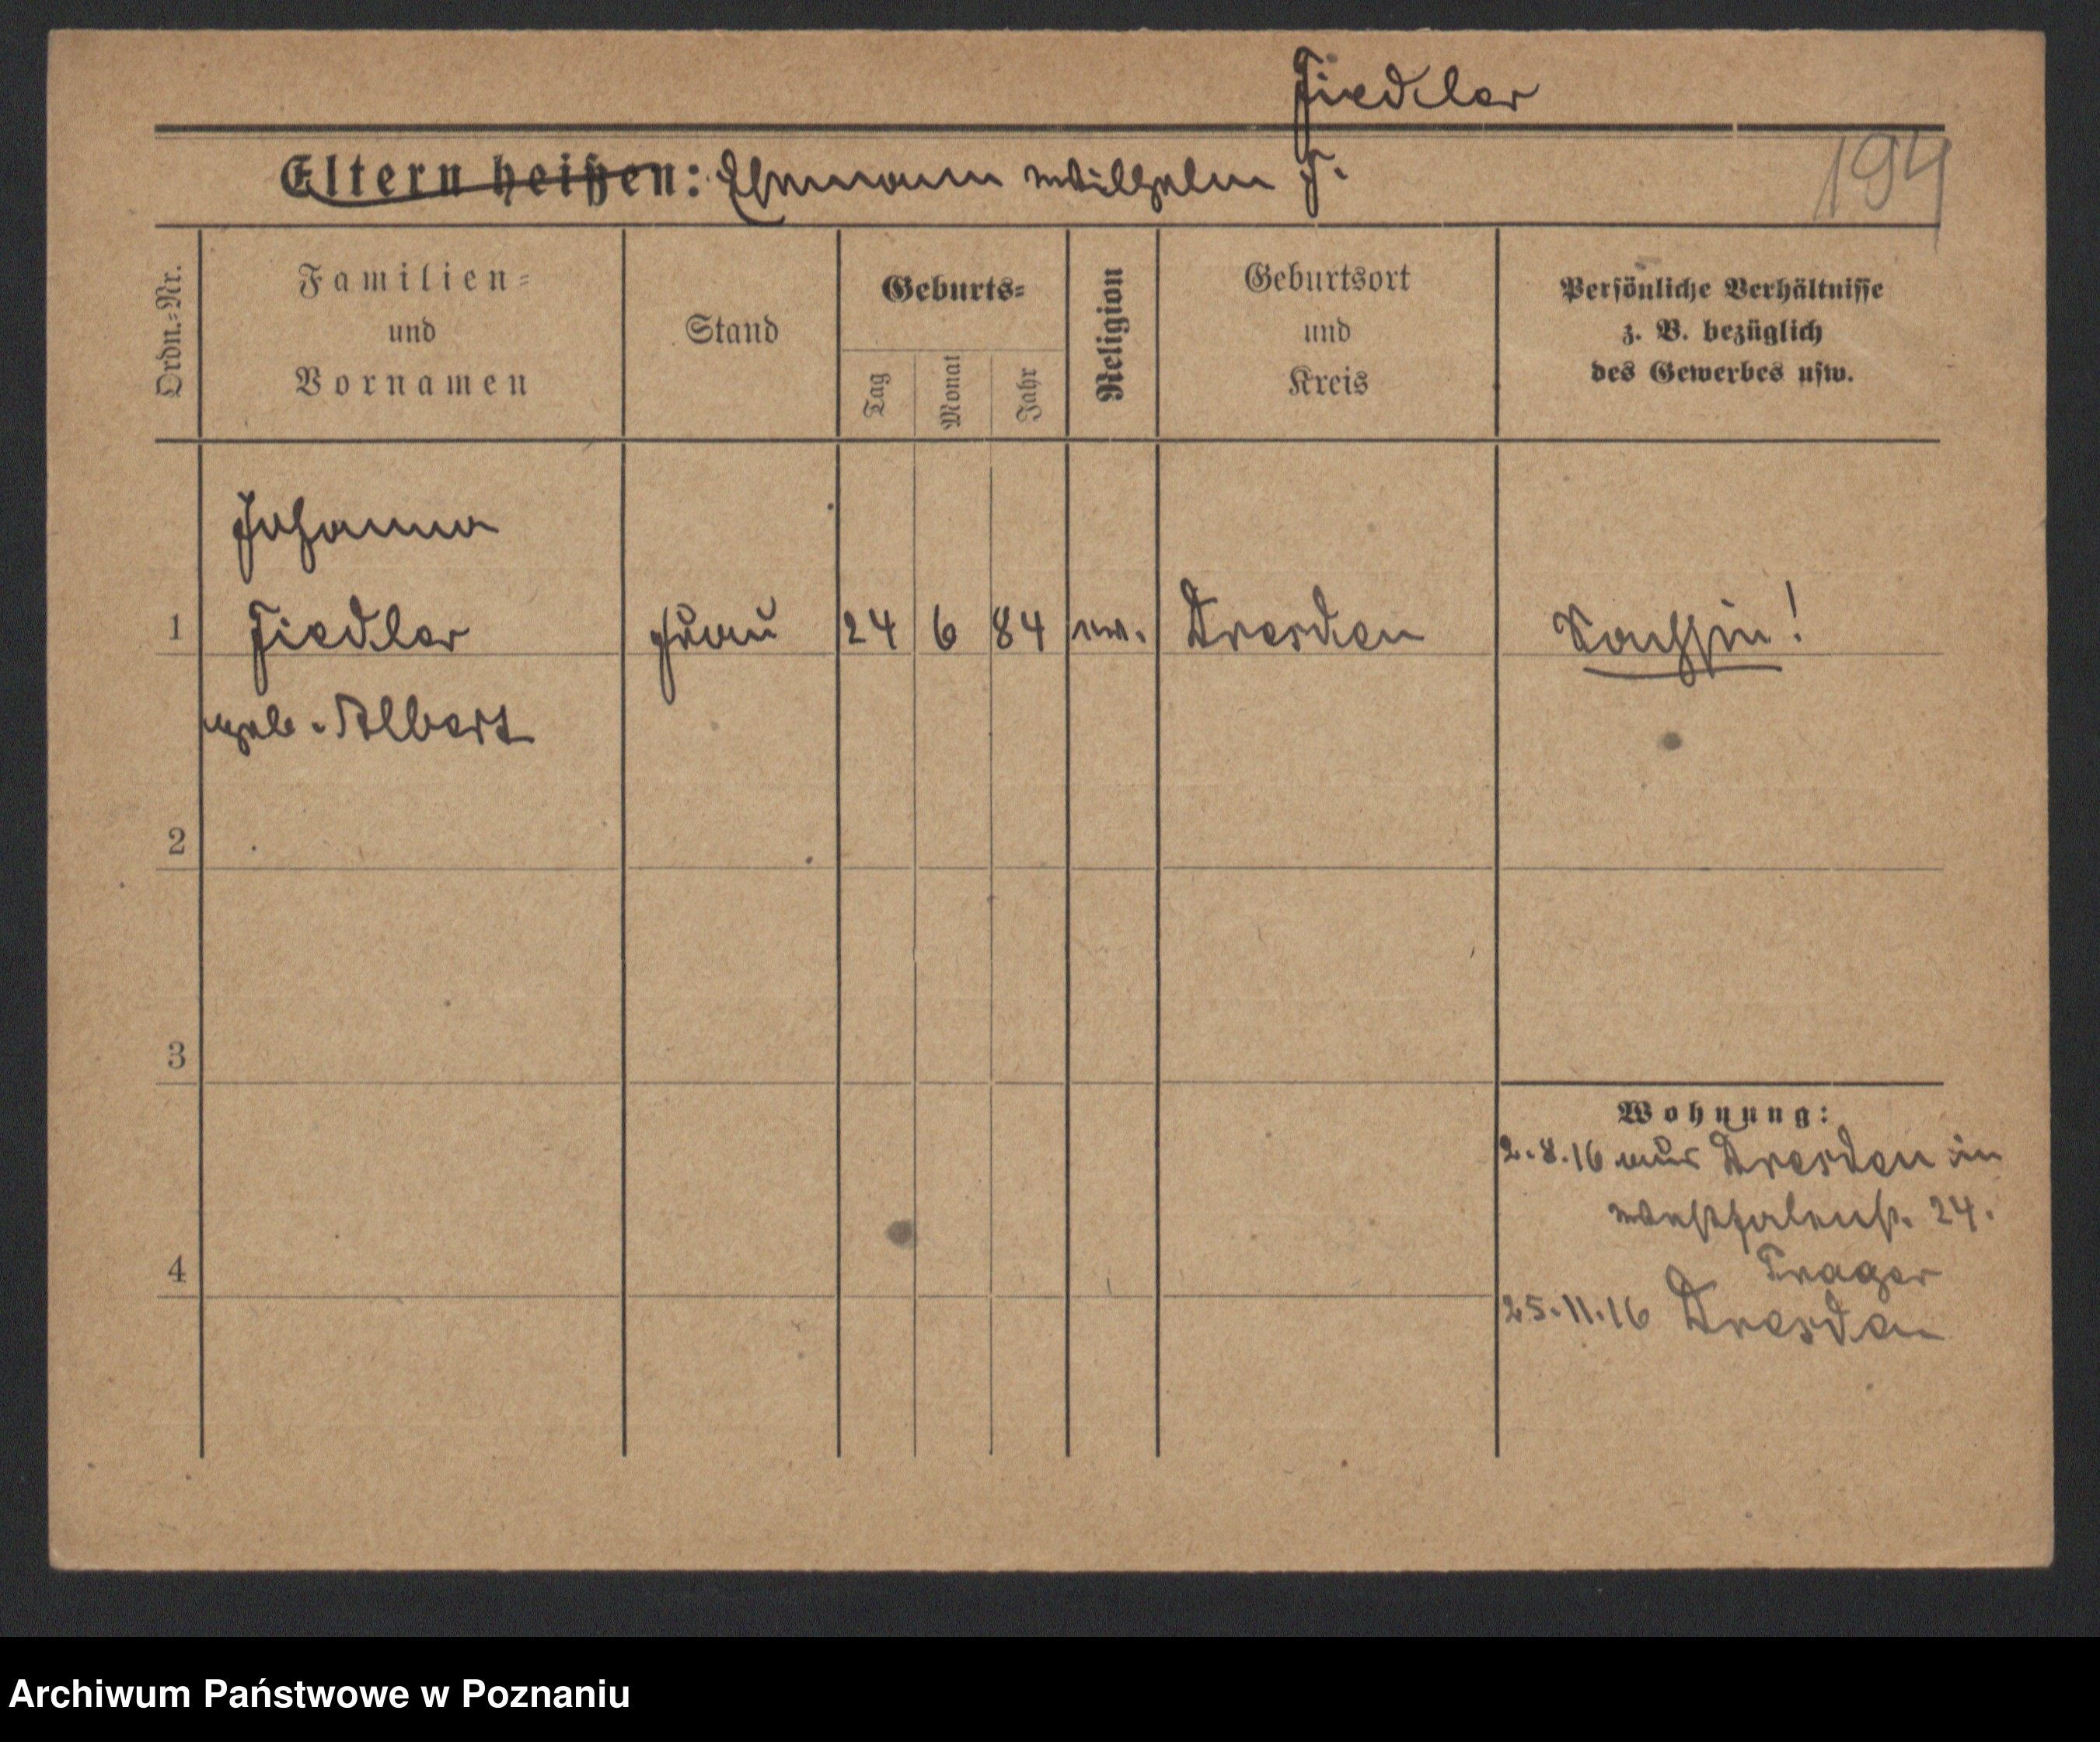 Fiedler
Eltern heißen: Ehemann Wilhelm F.
194
Ordn.=Nr.
Familien=
und
Vornamen
Stand
Geburts=
Tag
Monat
Jahr
Religion
Geburtsort
und
Kreis
Persönliche Verhältnisse
z. B. bezüglich
des Gewerbes usw.
Johanna
1 Fiedler Frau 24 6 84 ev. Dresden Sächsin!
geb. Albert
2
3
Wohnung:
2.8.16 aus Dresden in
Westfalenstr. 24.
4
25.11.16 Dresden
Archiwum Państwowe w Poznaniu